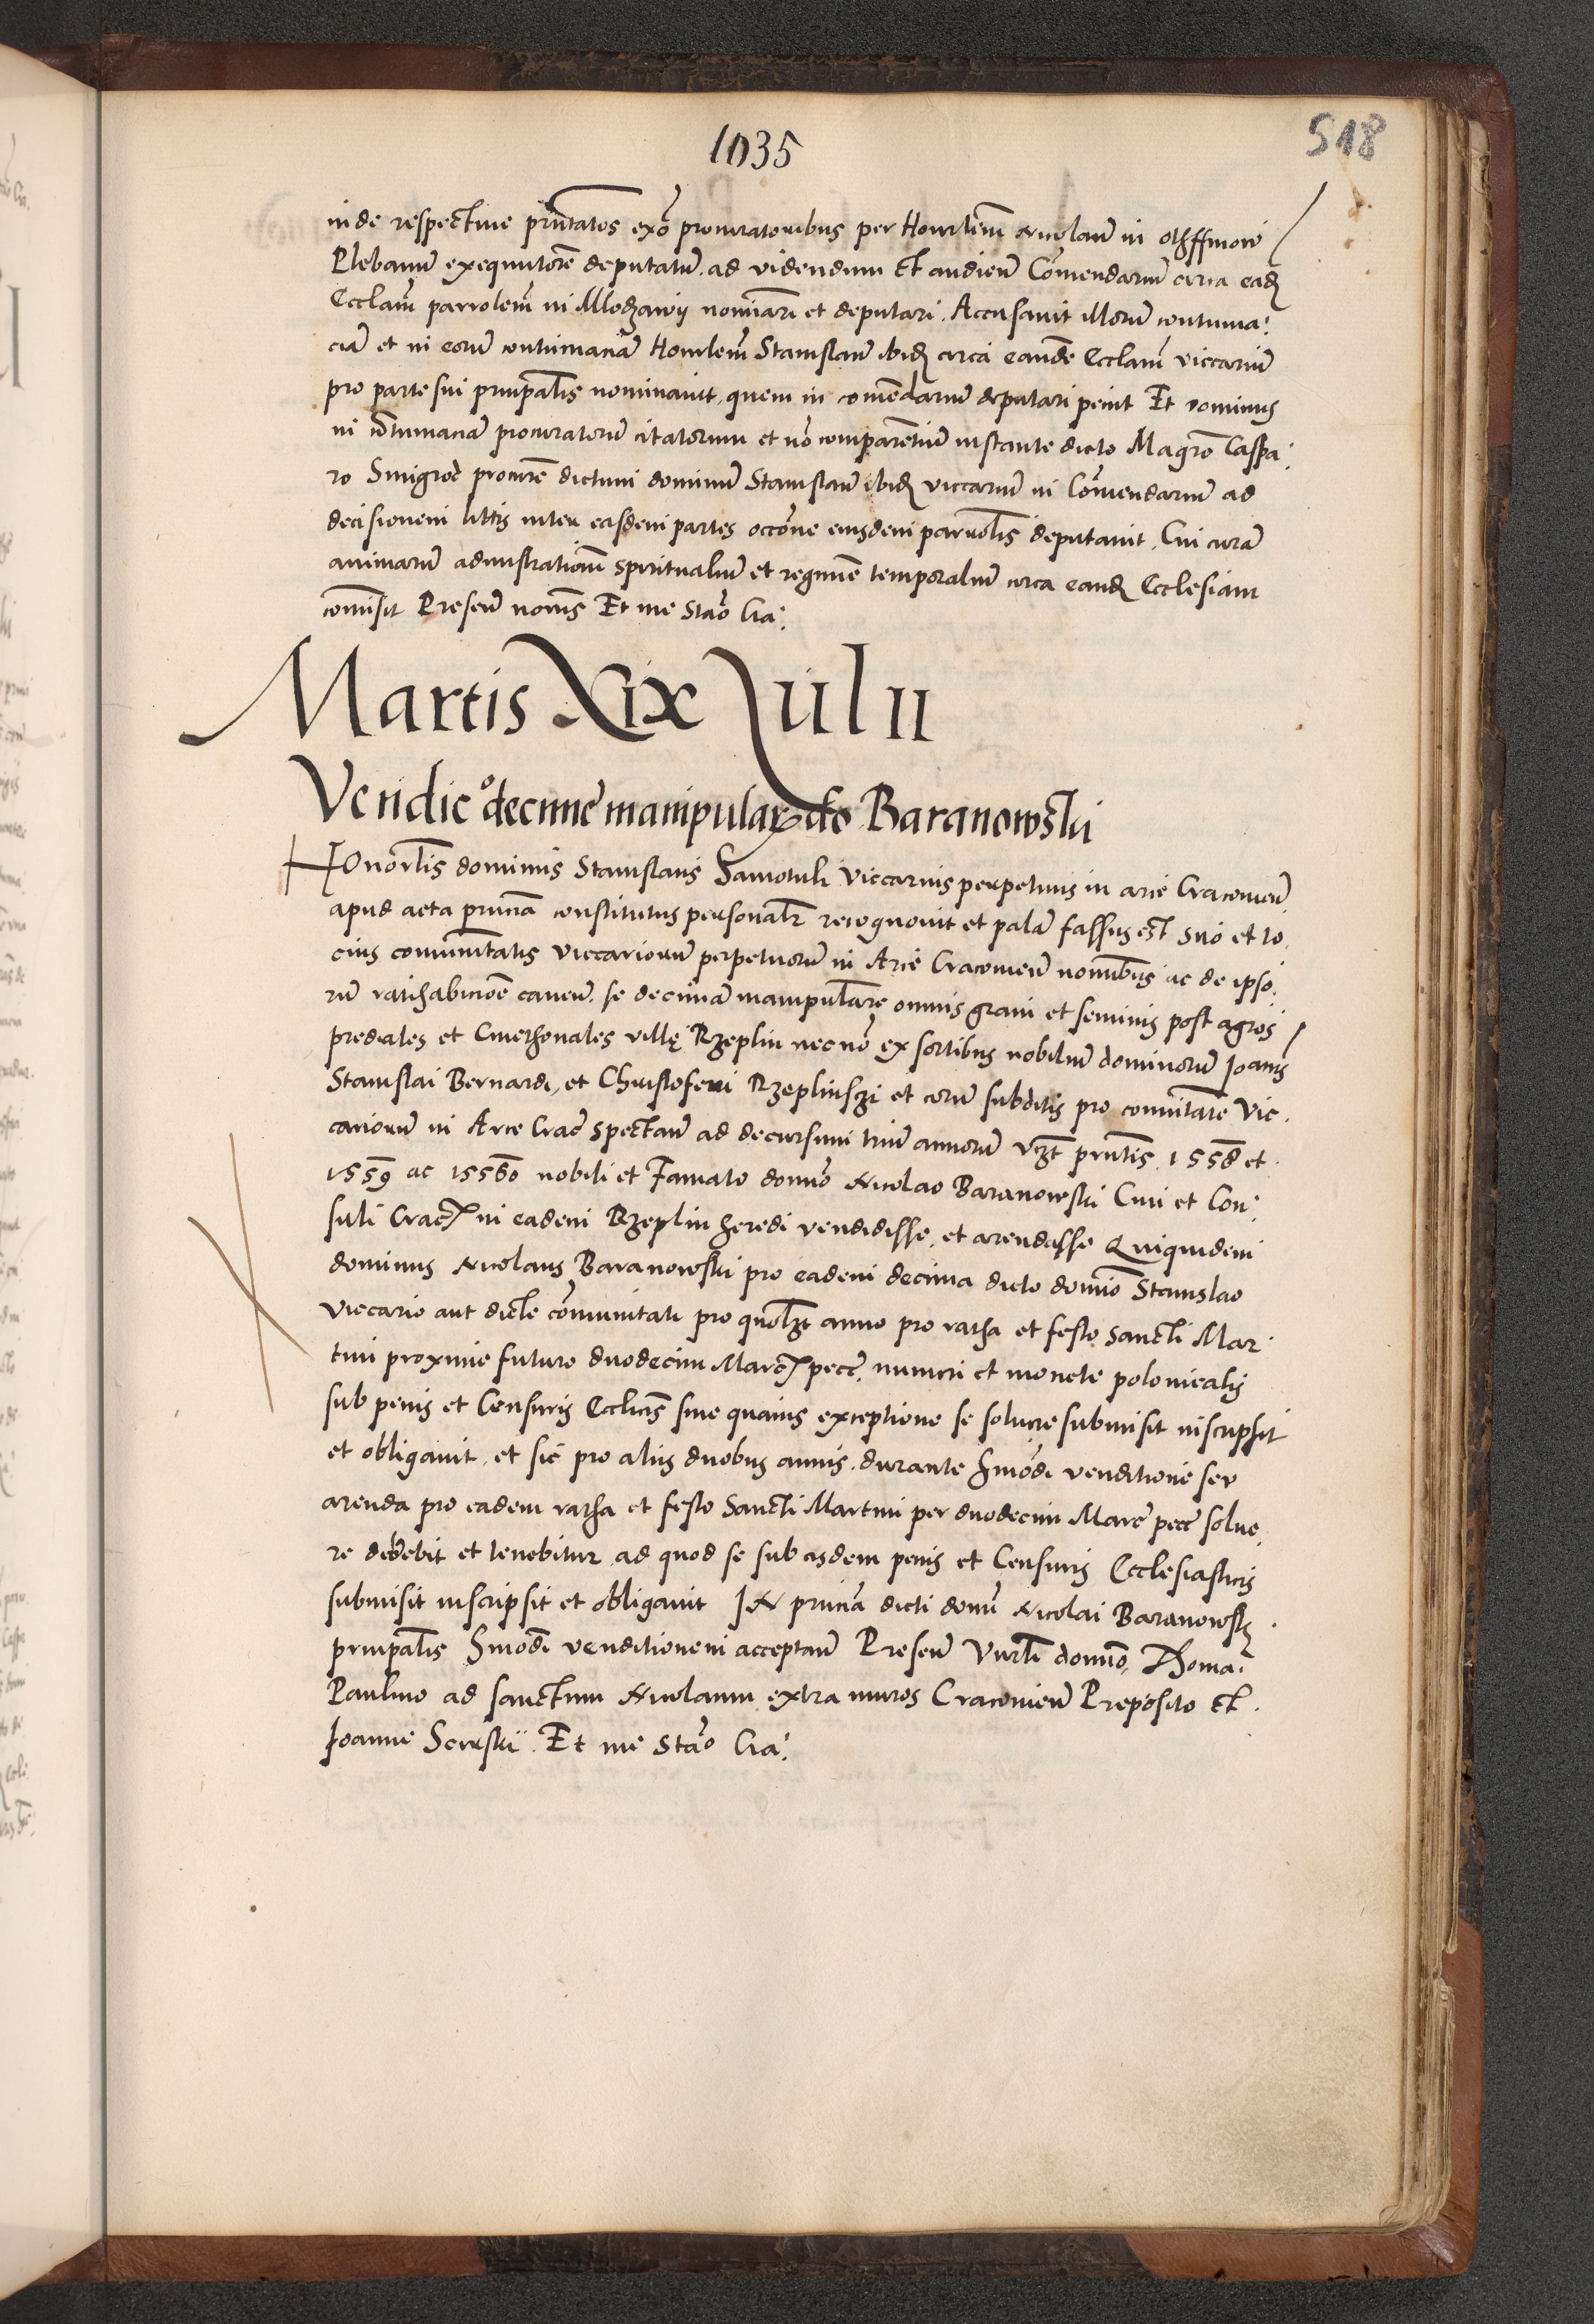 1035
518
inde respective prntatos exõ procuratoribus per Honrlem Nicolaum in
Plebanum exequutorẽ deputatum, ad videndum et audiend Cõmendarium circa eadz
Ecclam parrolem in Mlodzawy nominari et deputari. Accusavit illorum contuma:
ciã et in eorum contumaciã Honrlem Stanislaum ibidz circa eandẽ Ecclam viccarium
pro parte sui principalis nominavit, quem in comẽdarium deputari peciit Et dominus
in cõtumaciã procuratorum citatorum et nõ comparentium instante dicto Magrõ Caspa:
ro Smigrod procurẽ dictum dominum Stanislaum ibidz viccarium in Cõmendarium ad
decisionem littis inter easdem partes occõne eiusdem parrolis deputavit. Cui curã
animarum admistrationem spiritualium et regimẽ temporalium circa eandz Ecclesiam
comisit Presen nomis Et me Stão Cra:
Martis Xix Julii
Vendicº decime manipular dõ Baranowski
HOnorlis dominus Stanislaus Samotuli Viccarius perpetuus in arce Cracovien
apud acta prntia constitutus personalr recognovit et palã fassus est suo et to,
cius comunitatis viccariorum perpetuorum in Arce Cracovien nominibus ac de ipso,
rum ratihabicione caven. se decimã manipularẽ omnis grani et seminis post agros
prediales et Cmethonales villę Rzeplin necnõ ex sortibus nobilium dominorum Joanis
Stanislai Bernardi, et Christoferi Rzeplinszi et eorum subditis pro comunitate Vic.
cariorum in Arce Crac spectan ad decursum trium annorum vzt prntis, 1558 et
1559 ac 15560 nobili et Famato domino Nicolao Baranowski Civi et Con:
suli Crac in eadem Rzeplin heredi vendidisse, et arendasse Quiquidem
dominus Nicolaus Baranowski pro eadem decima dicto domino Stanislao
viccario aut dicte cõmunitati pro quolzt anno pro ratha et festo sancti Mar
tini proxime futuro duodecim Marc pecc, numeri et monete polonicalis
sub penis et Censuris Ecclicis sine quavis exceptione se solvere submisit inscripsit
et obligavit, et sic pro aliis duobus annis, durante hmõdi venditione seu
arenda pro eadem ratha et festo Sancti Martini per duodecim Marc pecc solve,
re debebit et tenebitur, ad quod se sub eisdem penis et Censuris Ecclesiasticis
submisit inscripsit et obligavit IN prntia dicti domi Nicolai Baranowsk
principalis hmõdi venditionem acceptan Presen Vnrli domino, Thoma:
Paulino ad sanctum Nicolaum extra muros Cracovien Preposito et
Joanne Serwski. Et me Stão Cra: